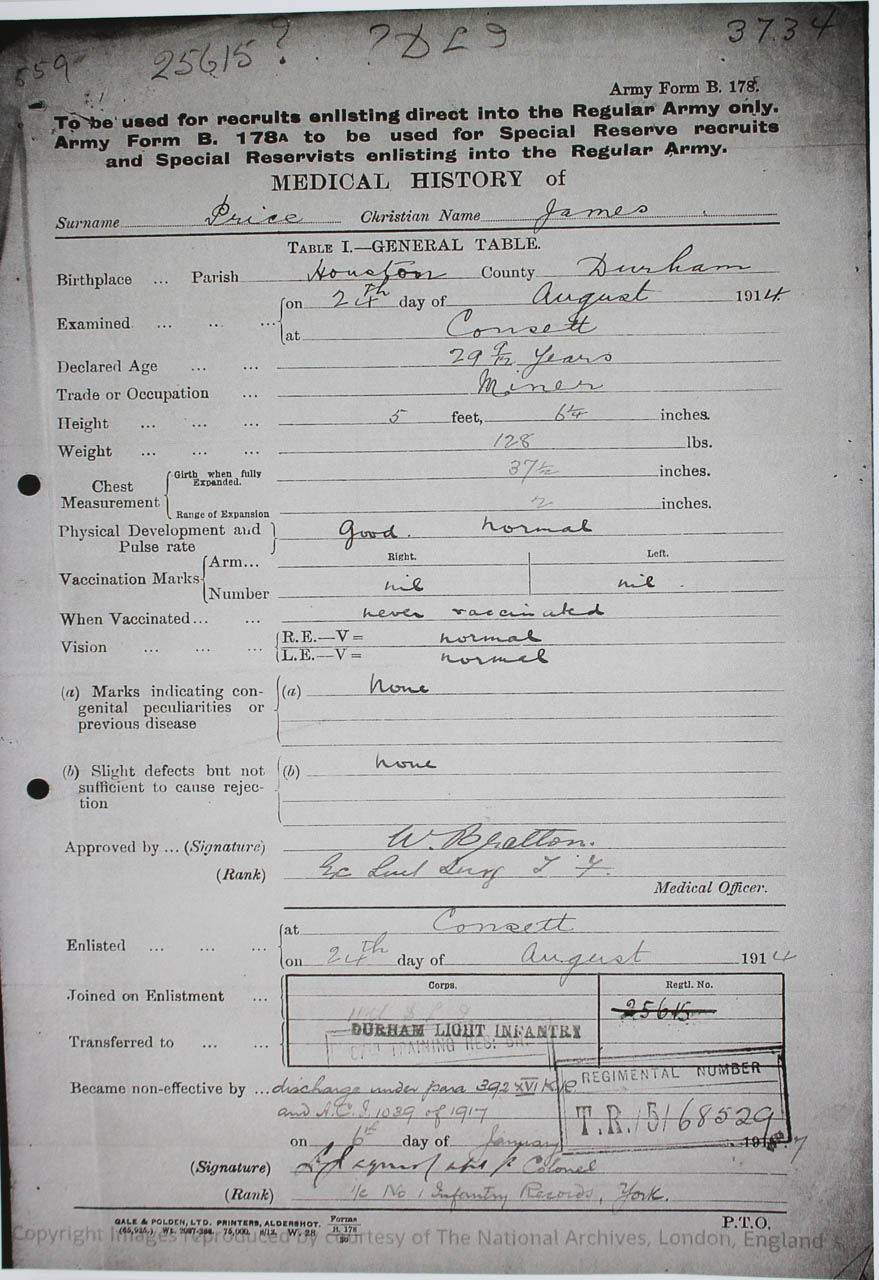 559 25615? ?DLI 3734
Army Form B. 178.
To be used for recruits enlisting direct into the Regular Army only.
Army Form B. 178A to be used for Special Reserve recruits
and Special Reservists enlisting into the Regular Army.
MEDICAL HISTORY of
Surname Price Christian Name James
TABLE I.—GENERAL TABLE.
Birthplace ... Parish Houston County Durham
Examined ... ... ... on 24th day of August 1914
at Consett
Declared Age ... ... 29 9/12 Years
Trade or Occupation ... Miner
Height ... ... ... 5 feet, 6 1/4 inches.
Weight ... ... ... 128 lbs.
Chest Measurement Girth when fully Expanded. 37 1/2 inches.
Range of Expansion 2 inches.
Physical Development and Pulse rate Good. normal
Right. Left.
Vaccination Marks Arm...
Number nil nil.
When Vaccinated... ... never vaccinated
Vision ... ... ... R.E.—V= normal
L.E.—V= normal
(a) Marks indicating con-
genital peculiarities or
previous disease
(a) None
(b) Slight defects but not
sufficient to cause rejec-
tion
(b) none
Approved by ... (Signature) W. Bratton.
(Rank) T. F.
Medical Officer.
Enlisted ... ... ... at Consett
on 24th day of August 1914
Corps. Regtl. No.
Joined on Enlistment ... 25615
DURHAM LIGHT INFANTRY
Transferred to ... ...
TRAINING RES.
REGIMENTAL NUMBER
T.R./5/68529
Became non-effective by ... discharge under para 392 XVI K.R.
and A.C.I. 1039 of 1917
on 6th day of January 191
(Signature) Colonel
(Rank) i/c No 1 Infantry Records, York.
GALE & POLDEN, LTD. PRINTERS, ALDERSHOT. Forms
B. 178
P.T.O.
Copyright images reproduced by courtesy of The National Archives, London, England